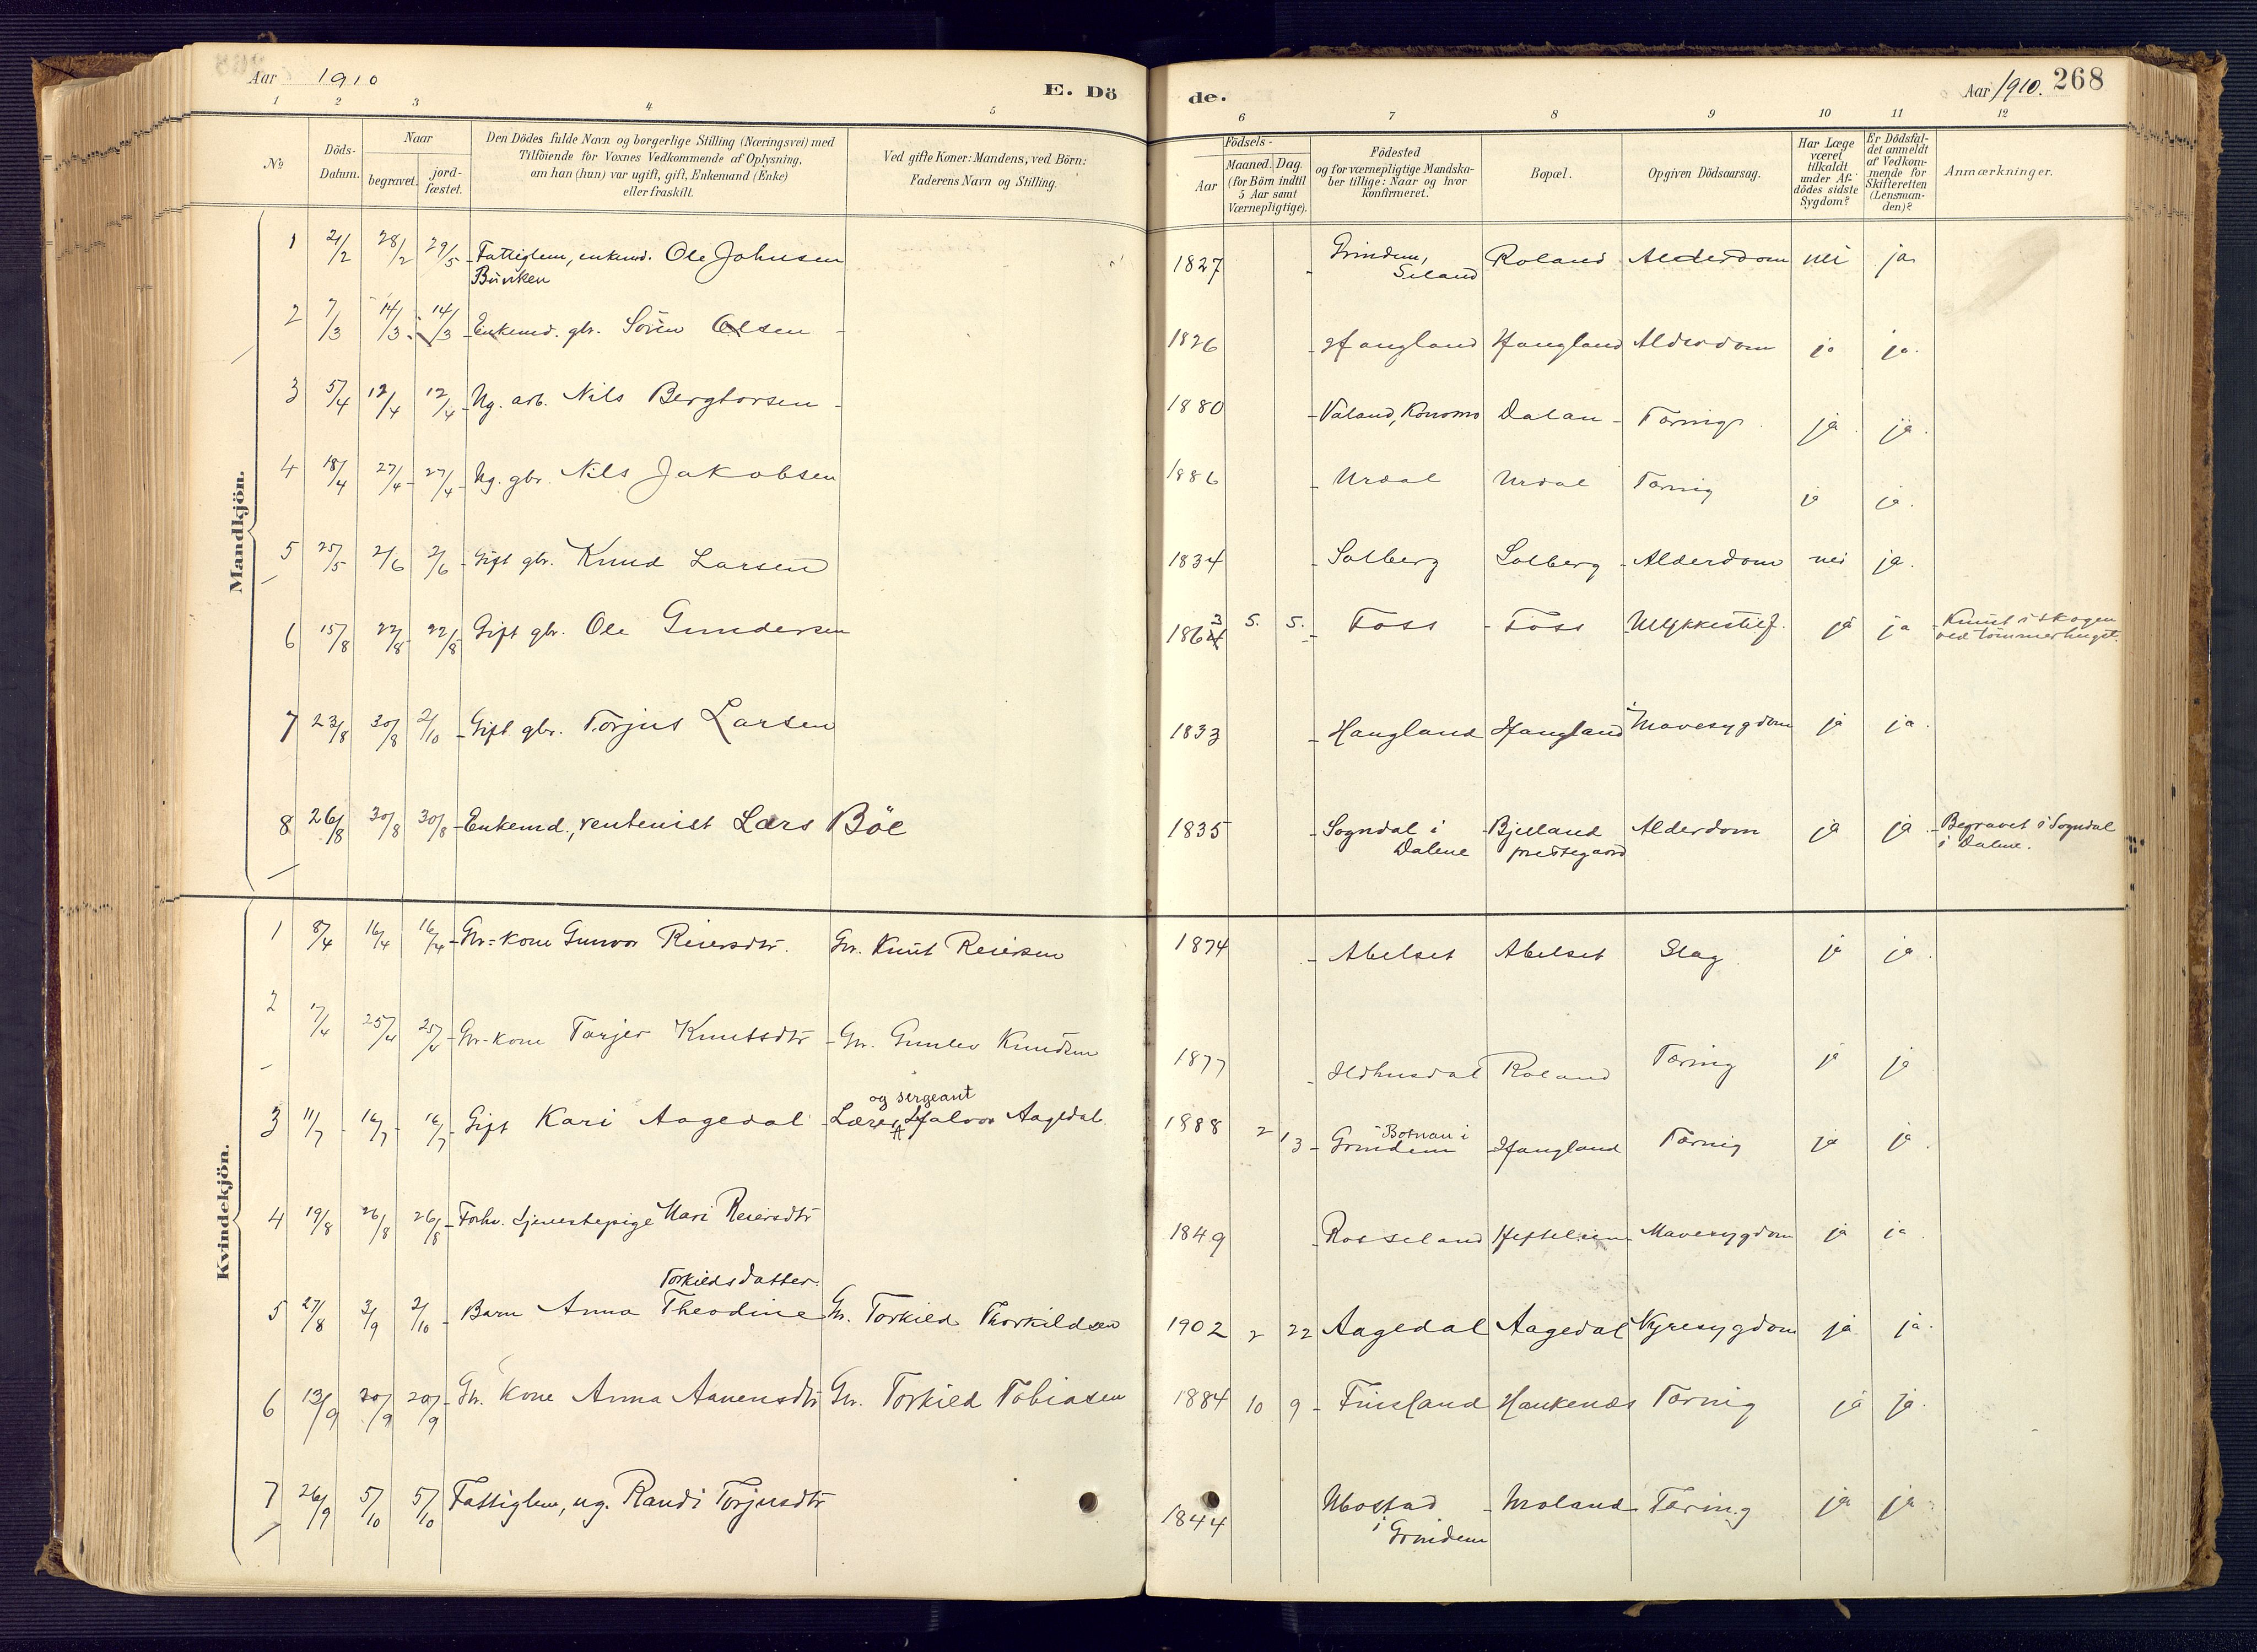 Aar 1910 E. Dö de. Aar 1910. 268
1 2 3 4 5 6 7 8 9 10 11 12
No
Döds-Datum.
Naar
begravet. jord-fæstet.
Den Dödes fulde Navn og borgerlige Stilling (Næringsvei) med
Tilföiende for Voxnes Vedkommende af Oplysning,
om han (hun) var ugift, gift, Enkemand (Enke)
eller fraskilt.
Ved gifte Koner: Mandens, ved Börn:
Faderens Navn og Stilling.
Födsels-
Aar
Maaned. Dag.
(for Börn indtil
5 Aar samt
Værnepligtige).
Födested
og for værnepligtige Mandska-
ber tillige: Naar og hvor
konfirmeret.
Bopæl.
Opgiven Dödsaarsag.
Har Læge
været
tilkaldt
under Af-
dödes sidste
Sygdom?
Er Dödsfal-
det anmeldt
af Vedkom-
mende for
Skifteretten
(Lensman-
den)?
Anmærkninger.
Mandkjön.
1 21/2 28/2 29/5 Fattiglem, enkemd. Ole Johnsen 1827 Grindem, Roland Alderdom nei ja
Buviken Seland
2 7/3 14/3 14/3 Enkemd. gbr. Sören Olsen 1826 Haugland Haugland Alderdom ja ja.
3 5/4 12/4 12/4 Ug. arb. Nils Bergtorsen 1880 Valand, Konsmo Dalan Tæring ja ja.
4 18/4 27/4 27/4 Ug. gbr. Nils Jakobsen 1886 Urdal Urdal Tæring ja ja.
5 25/5 2/6 2/6 Gift gbr. Knud Larsen 1834 Solberg Solberg Alderdom nei ja.
6 15/8 22/8 22/8 Gift gbr. Ole Gundersen 1863 5. 5. Foss Foss Ulykkestilf. ja ja Knust i skogen
ved tömmerhugst.
7 23/8 30/8 2/10 Gift gbr. Torjus Larsen 1833 Haugland Haugland Mavesygdom ja ja.
8 26/8 30/8 30/8 Enkemd., rentenist Lars Böe 1835 Sogndal i Bjelland Alderdom ja ja Begravet i Sogndal
Dalene prestegaard i Dalene.
Kvindekjön.
1 8/4 16/4 16/4 Gbr.-kone Gunvor Reiersdtr. Gbr. Knut Reiersen 1874 Abelset Abelset Slag ja ja
2 17/4 25/4 25/4 Gbr-kone Tarjer Knutsdtr Gbr. Gunlev Knudsen 1877 Ildhusdal Roland Tæring ja ja
og sergeant
3 11/7 16/7 16/7 Gift Kari Aagedal Lærer Halvor Aagedal 1888 2 13 Botnan i
Grindem Haugland Tæring ja ja.
4 19/8 26/8 26/8 Forhv. tjenestepige Mari Reiersdtr 1849 Rosseland Mavesygdom ja ja.
Torkildsdatter.
5 27/8 3/9 2/10 Barn Anna Theodine Gbr. Torkild Thorkildsen 1902 2 22 Aagedal Aagedal Nyresygdom ja ja.
6 13/9 20/9 20/9 Gbr. kone Anna Aanensdtr Gbr. Torkild Tobiasen 1884 10 9 Finsland Haukenæs Tæring ja ja.
7 26/9 5/10 5/10 Fattiglem, ug. Randi Torjusdtr 1844 Ubostad Moland Tæring ja ja
i Grindem